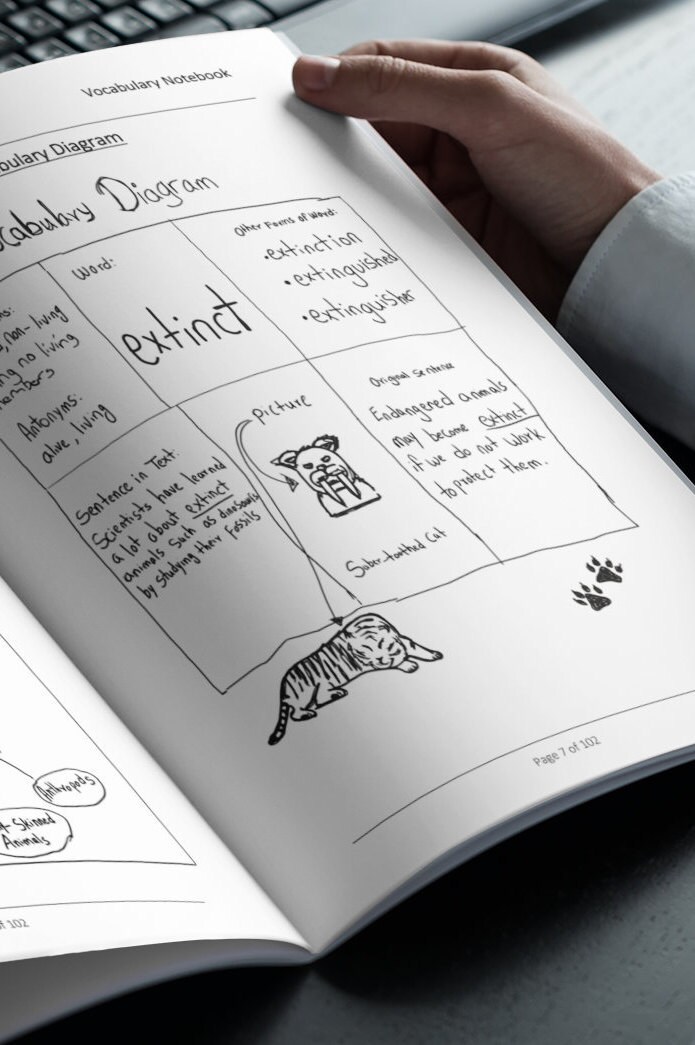 Vocabulary Notebook
Diagram
Diagram
Word:
extinct
Other Forms of Word:
•extinction
•extinguished
•extinguisher
non-living
no living
Antonyms:
alive, living
Sentence in Text:
Scientists have learned
a lot about extinct
animals such as dinosaurs
by studying their fossils
picture
Saber-toothed Cat
Original Sentence
Endangered animals
may become extinct
if we do not work
to protect them.
Page 7 of 102
Anthropods
Skinned
Animals
102